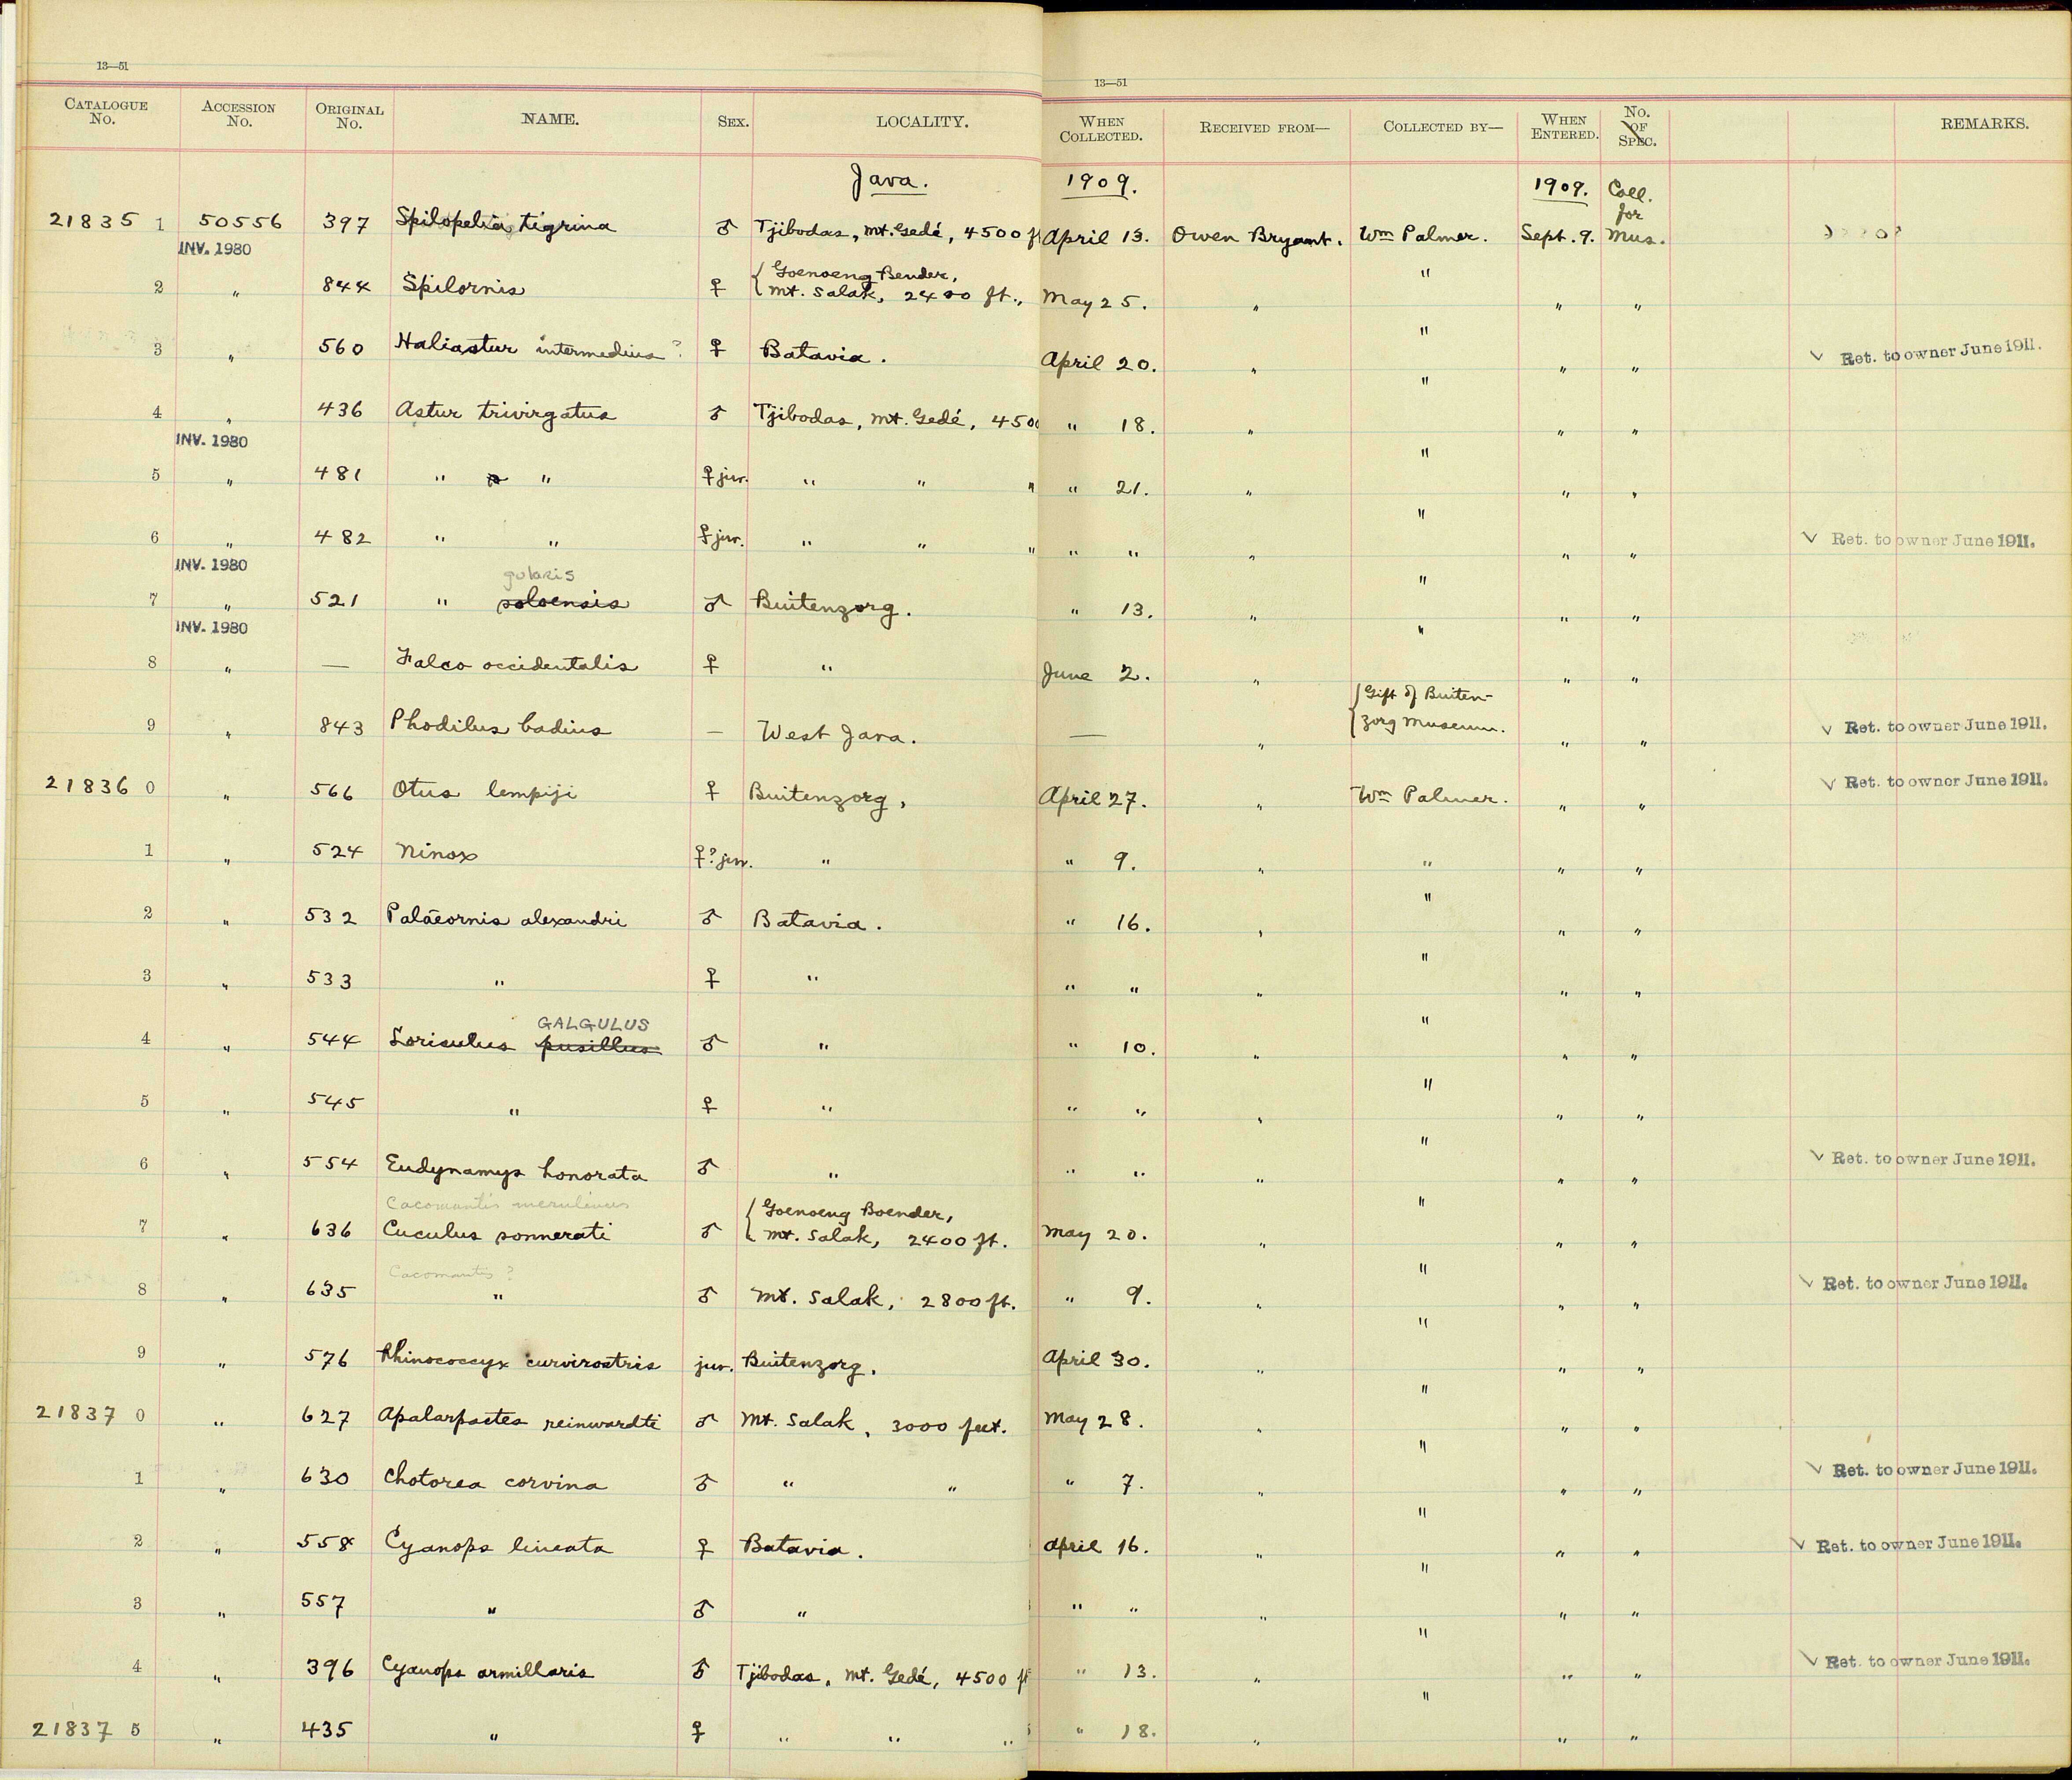 13—51
13—51
CATALOGUE No. ACCESSION No. ORIGINAL No. NAME. SEX. LOCALITY. WHEN COLLECTED. RECEIVED FROM— COLLECTED BY— WHEN ENTERED. No. OF SPEC. REMARKS.
Java. 1909. 1909. Coll. for
21835 1 50556 397 Spilopelia tigrina ♂ Tjibodas, Mt. Gedé, 4500 ft April 13. Owen Bryant. Wm Palmer. Sept. 9. Mus.
INV. 1980
2 " 844 Spilornis ♀ { Goenoeng Bender, Mt. Salak, 2400 ft., May 25. " " " "
3 " 560 Haliastur intermedius? ♀ Batavia. April 20. " " " " ✓ Ret. to owner June 1911.
4 " 436 Astur trivirgatus ♂ Tjibodas, Mt. Gedé, 4500 " 18. " " " "
INV. 1980
5 " 481 " " ♀ juv. " " " " 21. " " " "
6 " 482 " " ♀ juv. " " " " " " " " " ✓ Ret. to owner June 1911.
INV. 1980
gularis
7 " 521 " soloensis ♂ Buitenzorg. " 13. " " " "
INV. 1980
8 " — Falco occidentalis ♀ " June 2. " " " "
9 " 843 Phodilus badius — West Java. — " { Gift of Buitenzorg Museum. " " ✓ Ret. to owner June 1911.
21836 0 " 566 Otus lempiji ♀ Buitenzorg, April 27. " Wm Palmer. " " ✓ Ret. to owner June 1911.
1 " 524 Ninox ♀? juv. " " 9. " " " "
2 " 532 Palaeornis alexandri ♂ Batavia. " 16. " " " "
3 " 533 " ♀ " " " " " " "
GALGULUS
4 " 544 Loriculus pusillus ♂ " " 10. " " " "
5 " 545 " ♀ " " " " " " "
6 " 554 Eudynamys honorata ♂ " " " " " " " ✓ Ret. to owner June 1911.
Cacomantis merulinus
7 " 636 Cuculus sonnerati ♂ { Goenoeng Boender, Mt. Salak, 2400 ft. May 20. " " " "
Cacomantis ?
8 " 635 " ♂ Mt. Salak, 2800 ft. " 9. " " " " ✓ Ret. to owner June 1911.
9 " 576 Rhinococcyx curvirostris juv. Buitenzorg. April 30. " " " "
21837 0 " 627 Apalarpactes reinwardti ♂ Mt. Salak, 3000 feet. May 28. " " " "
1 " 630 Chotorea corvina ♂ " " " 7. " " " " ✓ Ret. to owner June 1911.
2 " 558 Cyanops lineata ♀ Batavia. April 16. " " " " ✓ Ret. to owner June 1911.
3 " 557 " ♂ " " " " " " "
4 " 396 Cyanops armillaris ♂ Tjibodas, Mt. Gedé, 4500 ft " 13. " " " " ✓ Ret. to owner June 1911.
21837 5 " 435 " ♀ " " " " 18. " " "